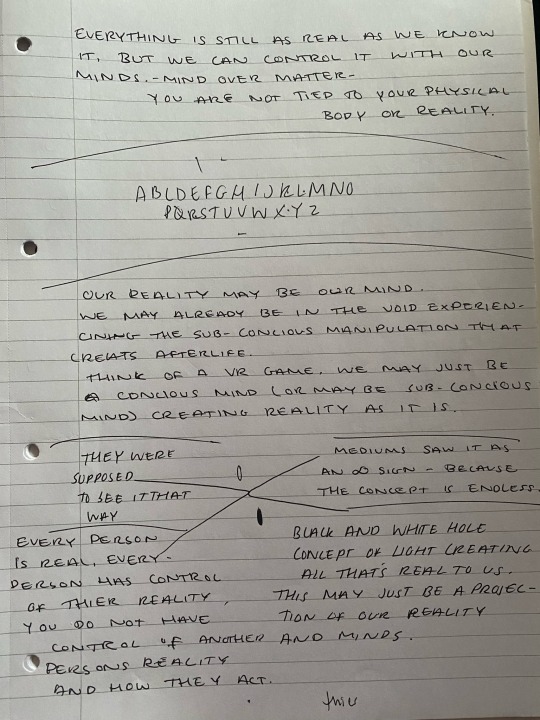 EVERYTHING IS STILL AS REAL AS WE KNOW
IT, BUT WE CAN CONTROL IT WITH OUR
MINDS. - MIND OVER MATTER -
YOU ARE NOT TIED TO YOUR PHYSICAL
BODY OR REALITY.
ABCDEFGHIJKLMNO
PQRSTUVWX.YZ
OUR REALITY MAY BE OUR MIND.
WE MAY ALREADY BE IN THE VOID EXPERIEN-
CINING THE SUB-CONCIOUS MANIPULATION THAT
CREATS AFTERLIFE.
THINK OF A VR GAME. WE MAY JUST BE
A CONCIOUS MIND (OR MAYBE SUB-CONCIOUS
MIND) CREATING REALITY AS IT IS.
THEY WERE
SUPPOSED
TO SEE IT THAT
WAY
MEDIUMS SAW IT AS
AN ∞ SIGN - BECAUSE
THE CONCEPT IS ENDLESS.
EVERY PERSON
IS REAL, EVERY-
PERSON HAS CONTROL
OF THIER REALITY,
YOU DO NOT HAVE
CONTROL OF ANOTHER
PERSONS REALITY
AND HOW THEY ACT.
BLACK AND WHITE HOLE
CONCEPT OF LIGHT CREATING
ALL THAT'S REAL TO US.
THIS MAY JUST BE A PROJEC-
TION OF OUR REALITY
AND MINDS.